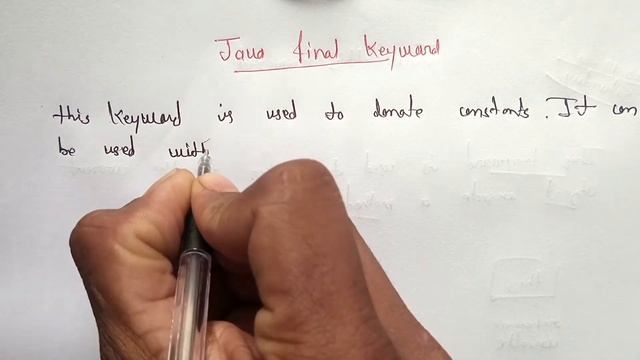 Java final Keyword
this keyword is used to donate constants. It can
be used with